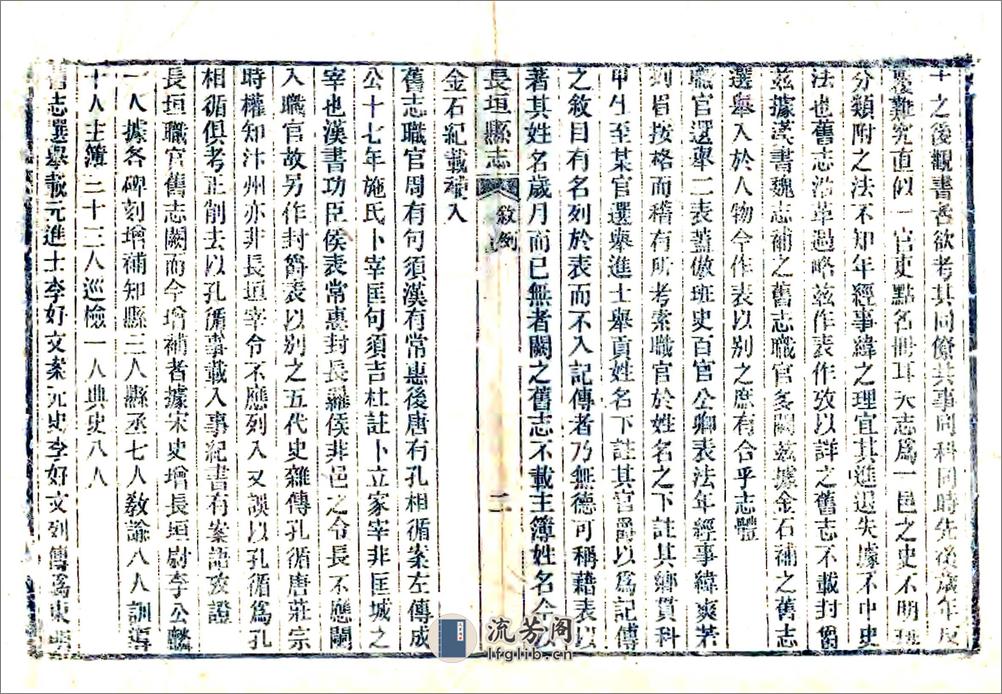 十之後觀書者欲考其同僚共事同科同時先後歲年反
覆難究直似一官吏點名冊耳夫志為一邑之史不明
分類附之法不知年經事緯之理宜其進退失據不中史
法也舊志沿革過略茲作表作攷以詳之舊志不載封爵
茲據漢書魏志補之舊志職官多闕茲據金石補之舊志
選舉入於人物今作表以別之庶有合乎志體
職官選舉二表蓋倣班史百官公卿表法年經事緯爽若
列眉按格而稽有所考索職官於姓名之下註其鄉貫科
甲生至某官選舉進士舉貢姓名下註其官爵以為記傳
之敘目有名列於表而不入記傳者乃無德可稱藉表以
著其姓名歲月而已無者闕之舊志不載主簿姓名今以
長垣縣志 敘例 二
金石紀載補入
舊志職官周有句須漢有常惠後唐有孔相循案左傳成
公十七年施氏卜宰匡句須吉杜註卜立家宰非匡城之
宰也漢書功臣侯表常惠封長羅侯非邑之令長不應闌
入職官故另作封爵表以別之五代史雜傳孔循唐莊宗
時權知汴州亦非長垣宰令不應列入又誤以孔循為孔
相循但考正削去以孔循事載入事紀書有案語攷證
長垣職官舊志闕而今增補者據宋史增長垣尉李公麟
一人據各碑刻增補知縣三人縣丞七人教諭八人訓導
十人主簿二十三人巡檢一人典史八人
舊志選舉載元進士李好文案元史李好文列傳為東明